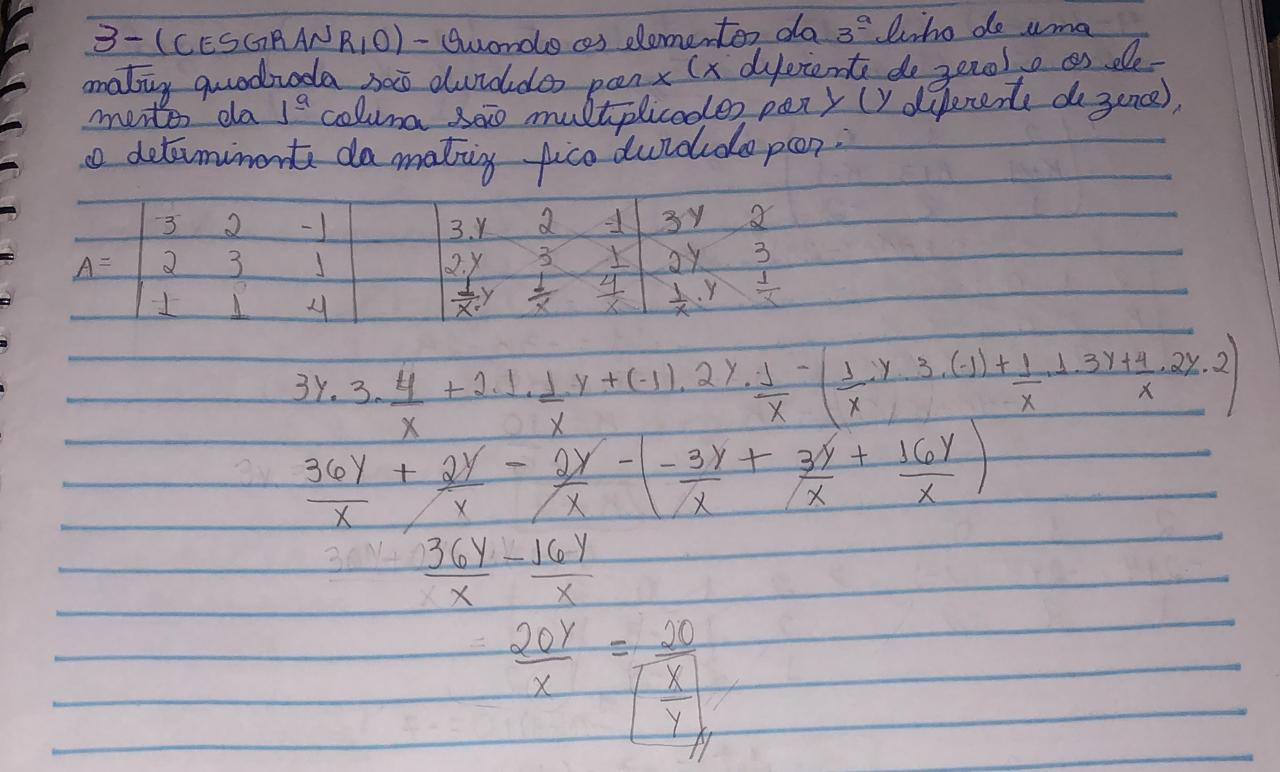 3 - (CESGRANRIO) - Quando os elementos da 3ª linha de uma
matriz quadrada são divididos por x (x diferente de zero) e os ele-
mentos da 1ª coluna são multiplicados por y (y diferente de zero),
o determinante da matriz fica dividido por:
| 3 2 -1 | | 3.y 2 -1 | 3y 2
A= | 2 3 1 | | 2.y 3 1 | 2y 3
| 1 1 4 | | 1/x.y 1/x 4/x | 1/x.y 1/x
3y.3.4/x + 2.1.1/x y + (-1).2y.1/x - (1/x.y.3.(-1) + 1/x.1.3y + 4/x.2y.2)
36y/x + 2y/x - 2y/x - (-3y/x + 3y/x + 16y/x)
36y/x - 16y/x
20y/x = 20/(x/y)